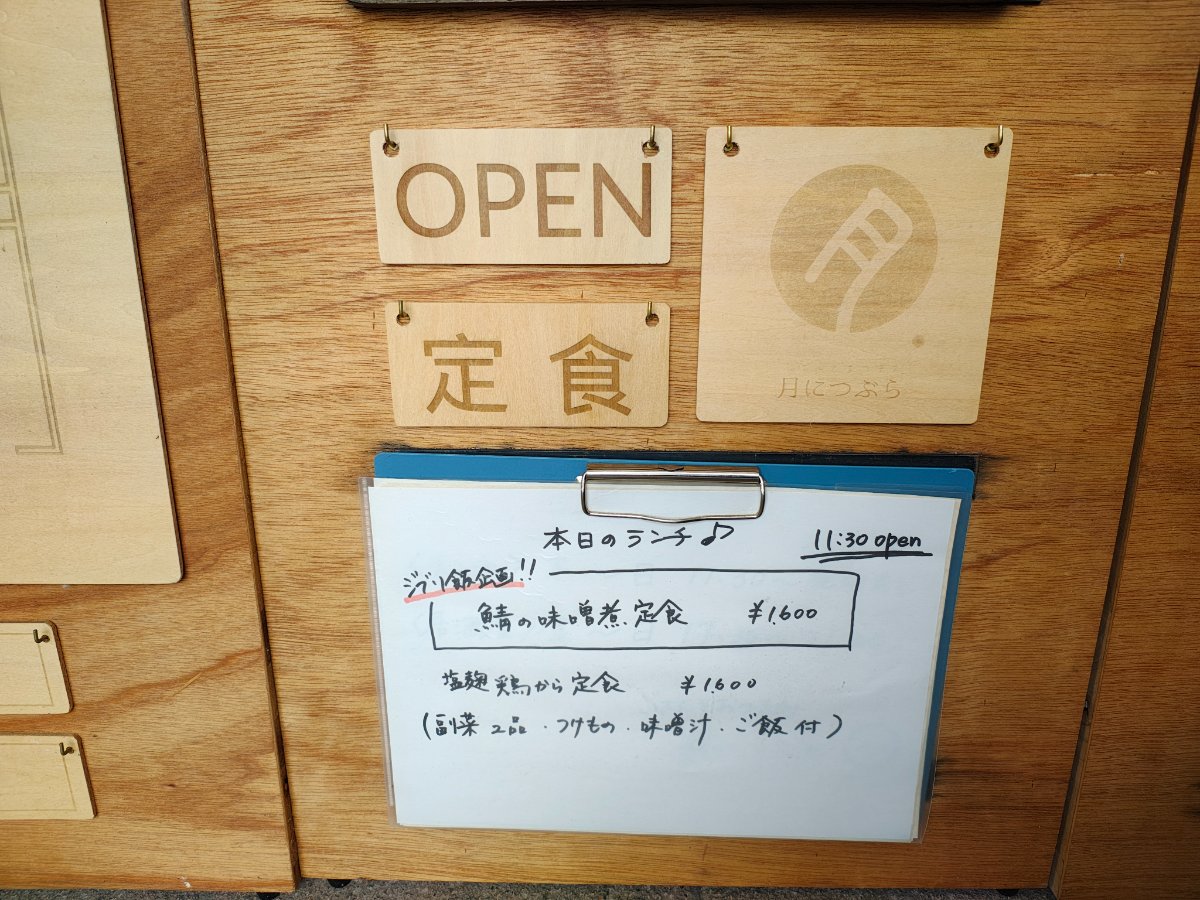 OPEN
定食
月
月につぶら
本日のランチ♪
11:30 open
ジブリ飯企画!!
鯖の味噌煮定食 ¥1,600
塩麹鶏から定食 ¥1,600
(副菜2品・つけもの・味噌汁・ご飯付)